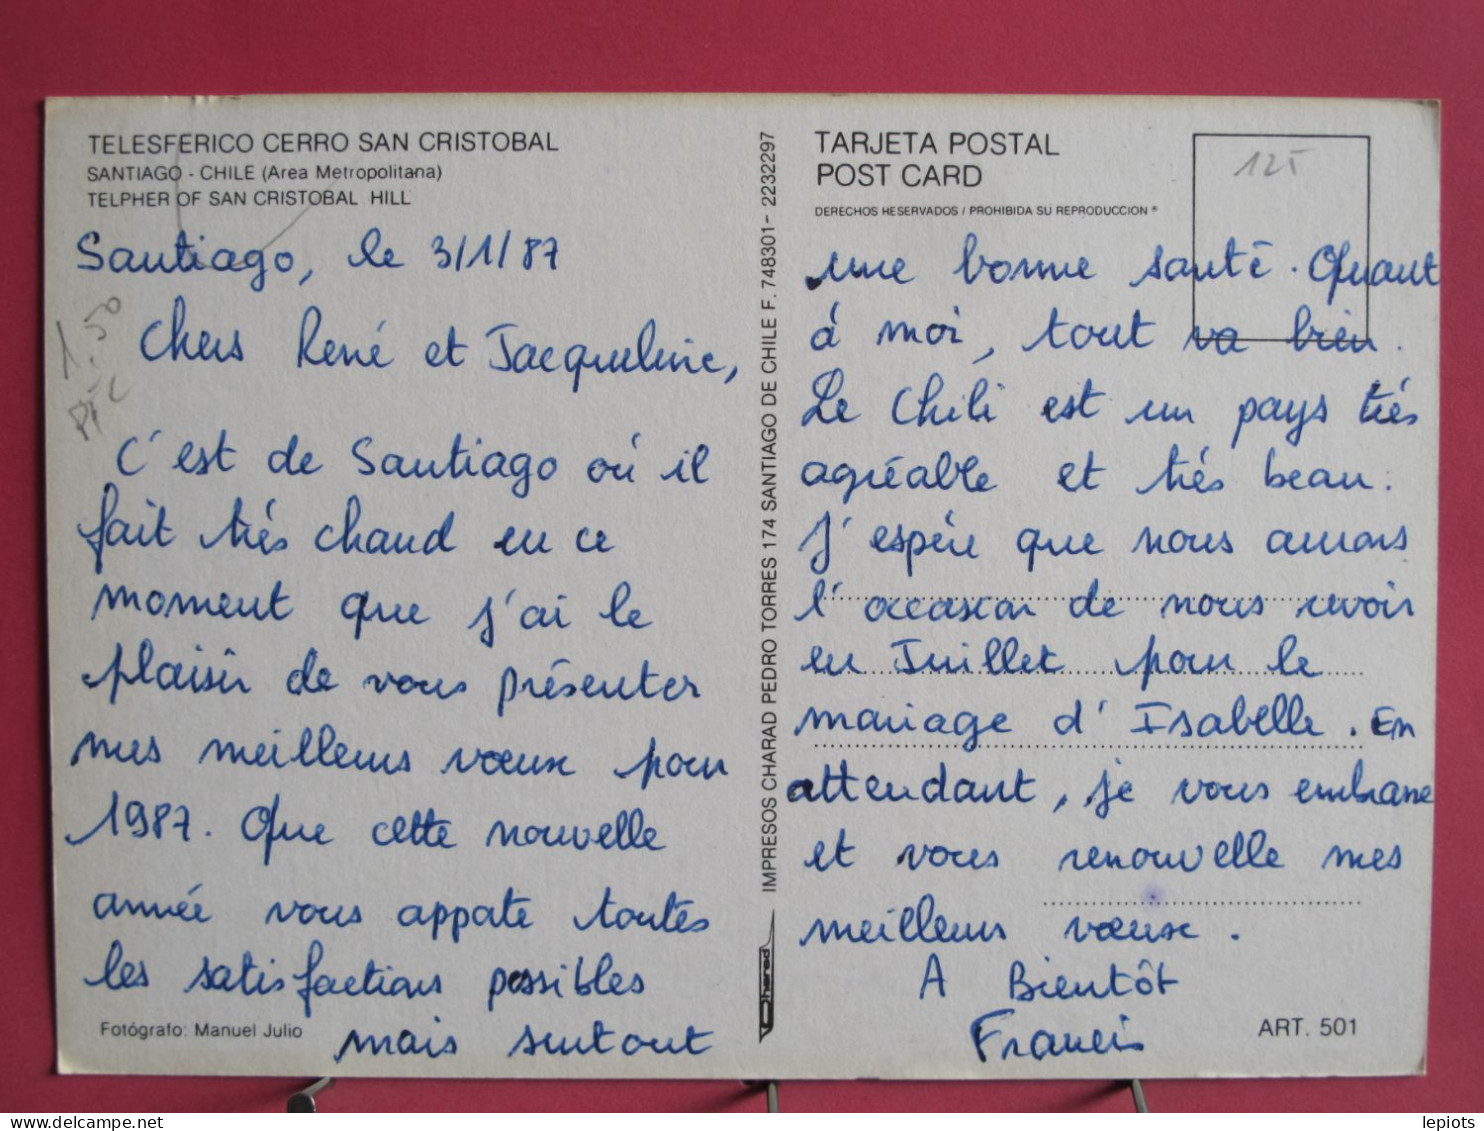 TELESFERICO CERRO SAN CRISTOBAL
SANTIAGO - CHILE (Area Metropolitana)
TELPHER OF SAN CRISTOBAL HILL
Santiago, le 3/1/87
Chers René et Jacqueline,
C'est de Santiago où il
fait très chaud en ce
moment que j'ai le
plaisir de vous présenter
mes meilleurs vœux pour
1987. Que cette nouvelle
année vous appate toutes
les satisfactions possibles
mais surtout
Fotógrafo: Manuel Julio
1.50
IMPRESOS CHARAD PEDRO TORRES 174 SANTIAGO DE CHILE F. 748301 - 2232297
Charad
TARJETA POSTAL
POST CARD
DERECHOS RESERVADOS / PROHIBIDA SU REPRODUCCION
125
une bonne santé. Quant
à moi, tout va bien.
Le Chili est un pays très
agréable et très beau.
J'espère que nous aurons
l'occasion de nous revoir
en Juillet pour le
mariage d'Isabelle. En
attendant, je vous embrasse
et vous renouvelle mes
meilleurs vœux.
A Bientôt
Francis
ART. 501
lepiots